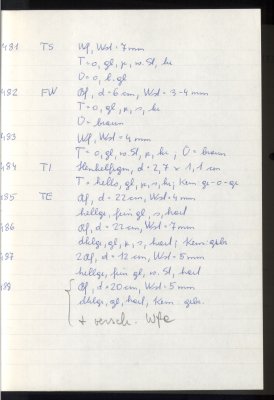 481 TS Wf, Wst = 7 mm
T = o, gl, µ, w. St, ha
O = o, h. gl
482 FW Bf, d = 6 cm, Wst = 3-4 mm
T = o, gl, µ, s, ha
O = braun
483 Wf, Wst = 4 mm
T = o, gl, w. St, µ, ha ; O = braun
484 TI Henkelfrgm, d = 2,7 x 1,1 cm
T = hello, gl, µ, s, ha; Kern ge-o-ge
485 TE Rf, d = 22 cm, Wst = 4 mm
hellgr, fein gl, s, hart
486 Rf, d = 22 cm, Wst = 7 mm
dklgr, gl, µ, s, hart ; Kern - gebr
487 2 Rf, d = 12 cm, Wst = 5 mm
hellgr, fein gl, w. St, hart
488 Rf, d = 20 cm, Wst = 5 mm
dklgr, gl, hart, Kern gebr.
+ versch. Wfe